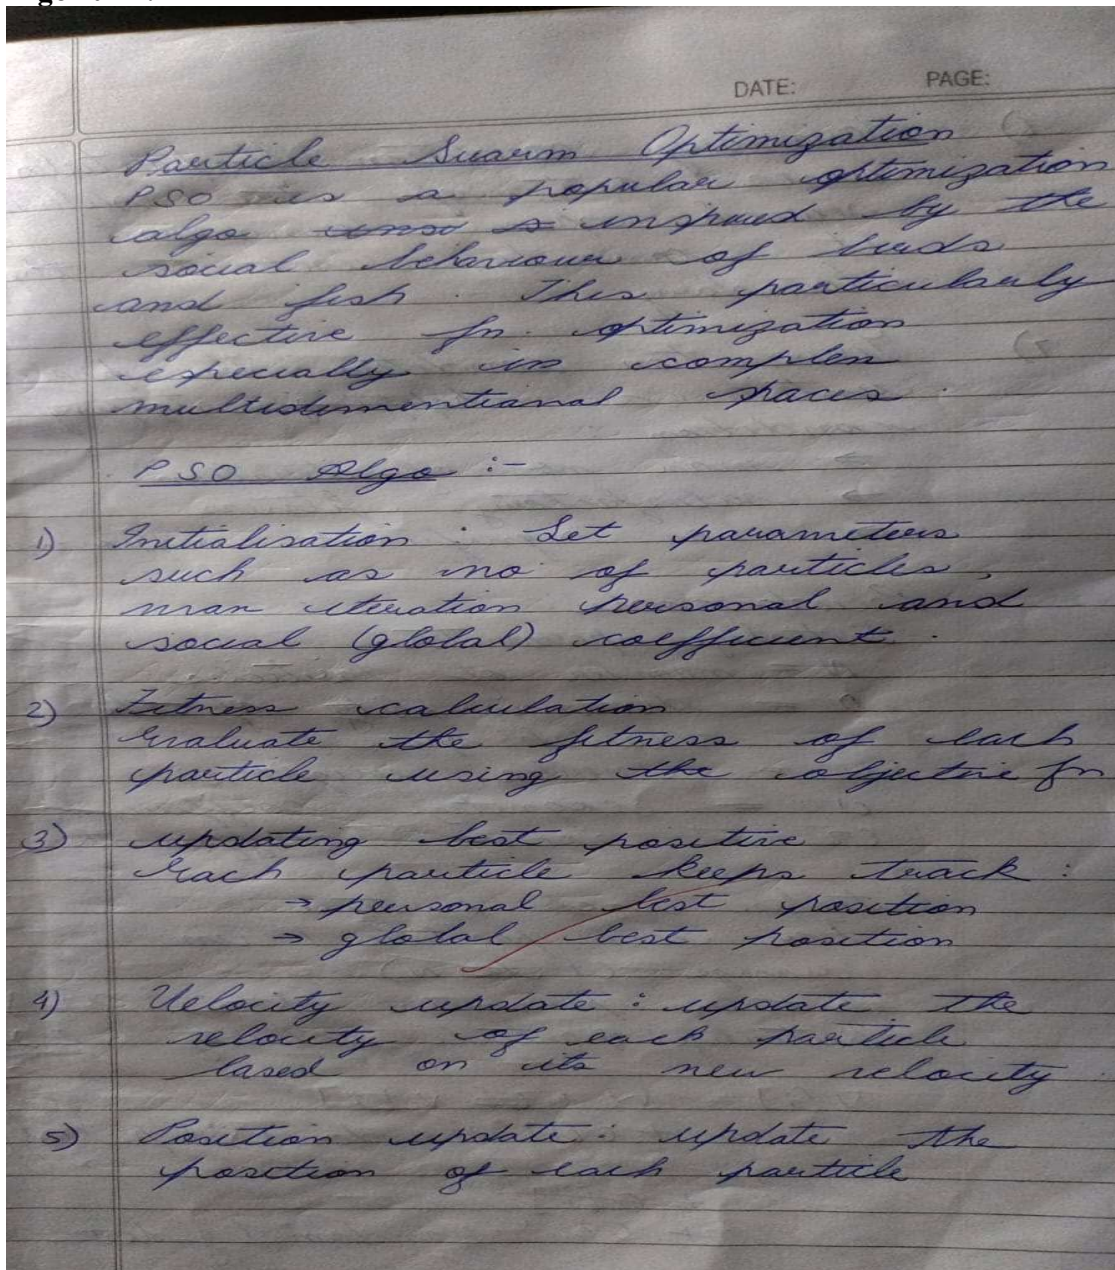 DATE: PAGE:
Particle Swarm Optimization
PSO is a popular optimization
algo inspired by the
social behaviour of birds
and fish. This particularly
effective fn. optimization
especially in complex
multidimentional spaces.
PSO Algo :-
1) Initialisation : Set parameters
such as no of particles,
max iteration personal and
social (global) coefficient.
2) Fitness calculation
Evaluate the fitness of each
particle using the objective fn
3) updating best positive
Each particle keeps track :
→ personal best position
→ global best position
4) Velocity update : update the
velocity of each particle
based on its new velocity
5) Position update : update the
position of each particle